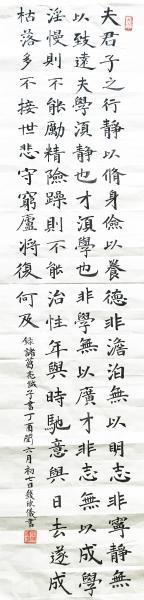 夫君子之行靜以脩身儉以養德非澹泊無以明志非寧靜無
以致遠夫學湏靜也才湏學也非學無以廣才非志無以成學
淫慢則不能勵精險躁則不能治性年與時馳意與日去遂成
枯落多不接世悲守窮廬將復何及
錄諸葛亮誡子書丁酉閏六月初七日儀書